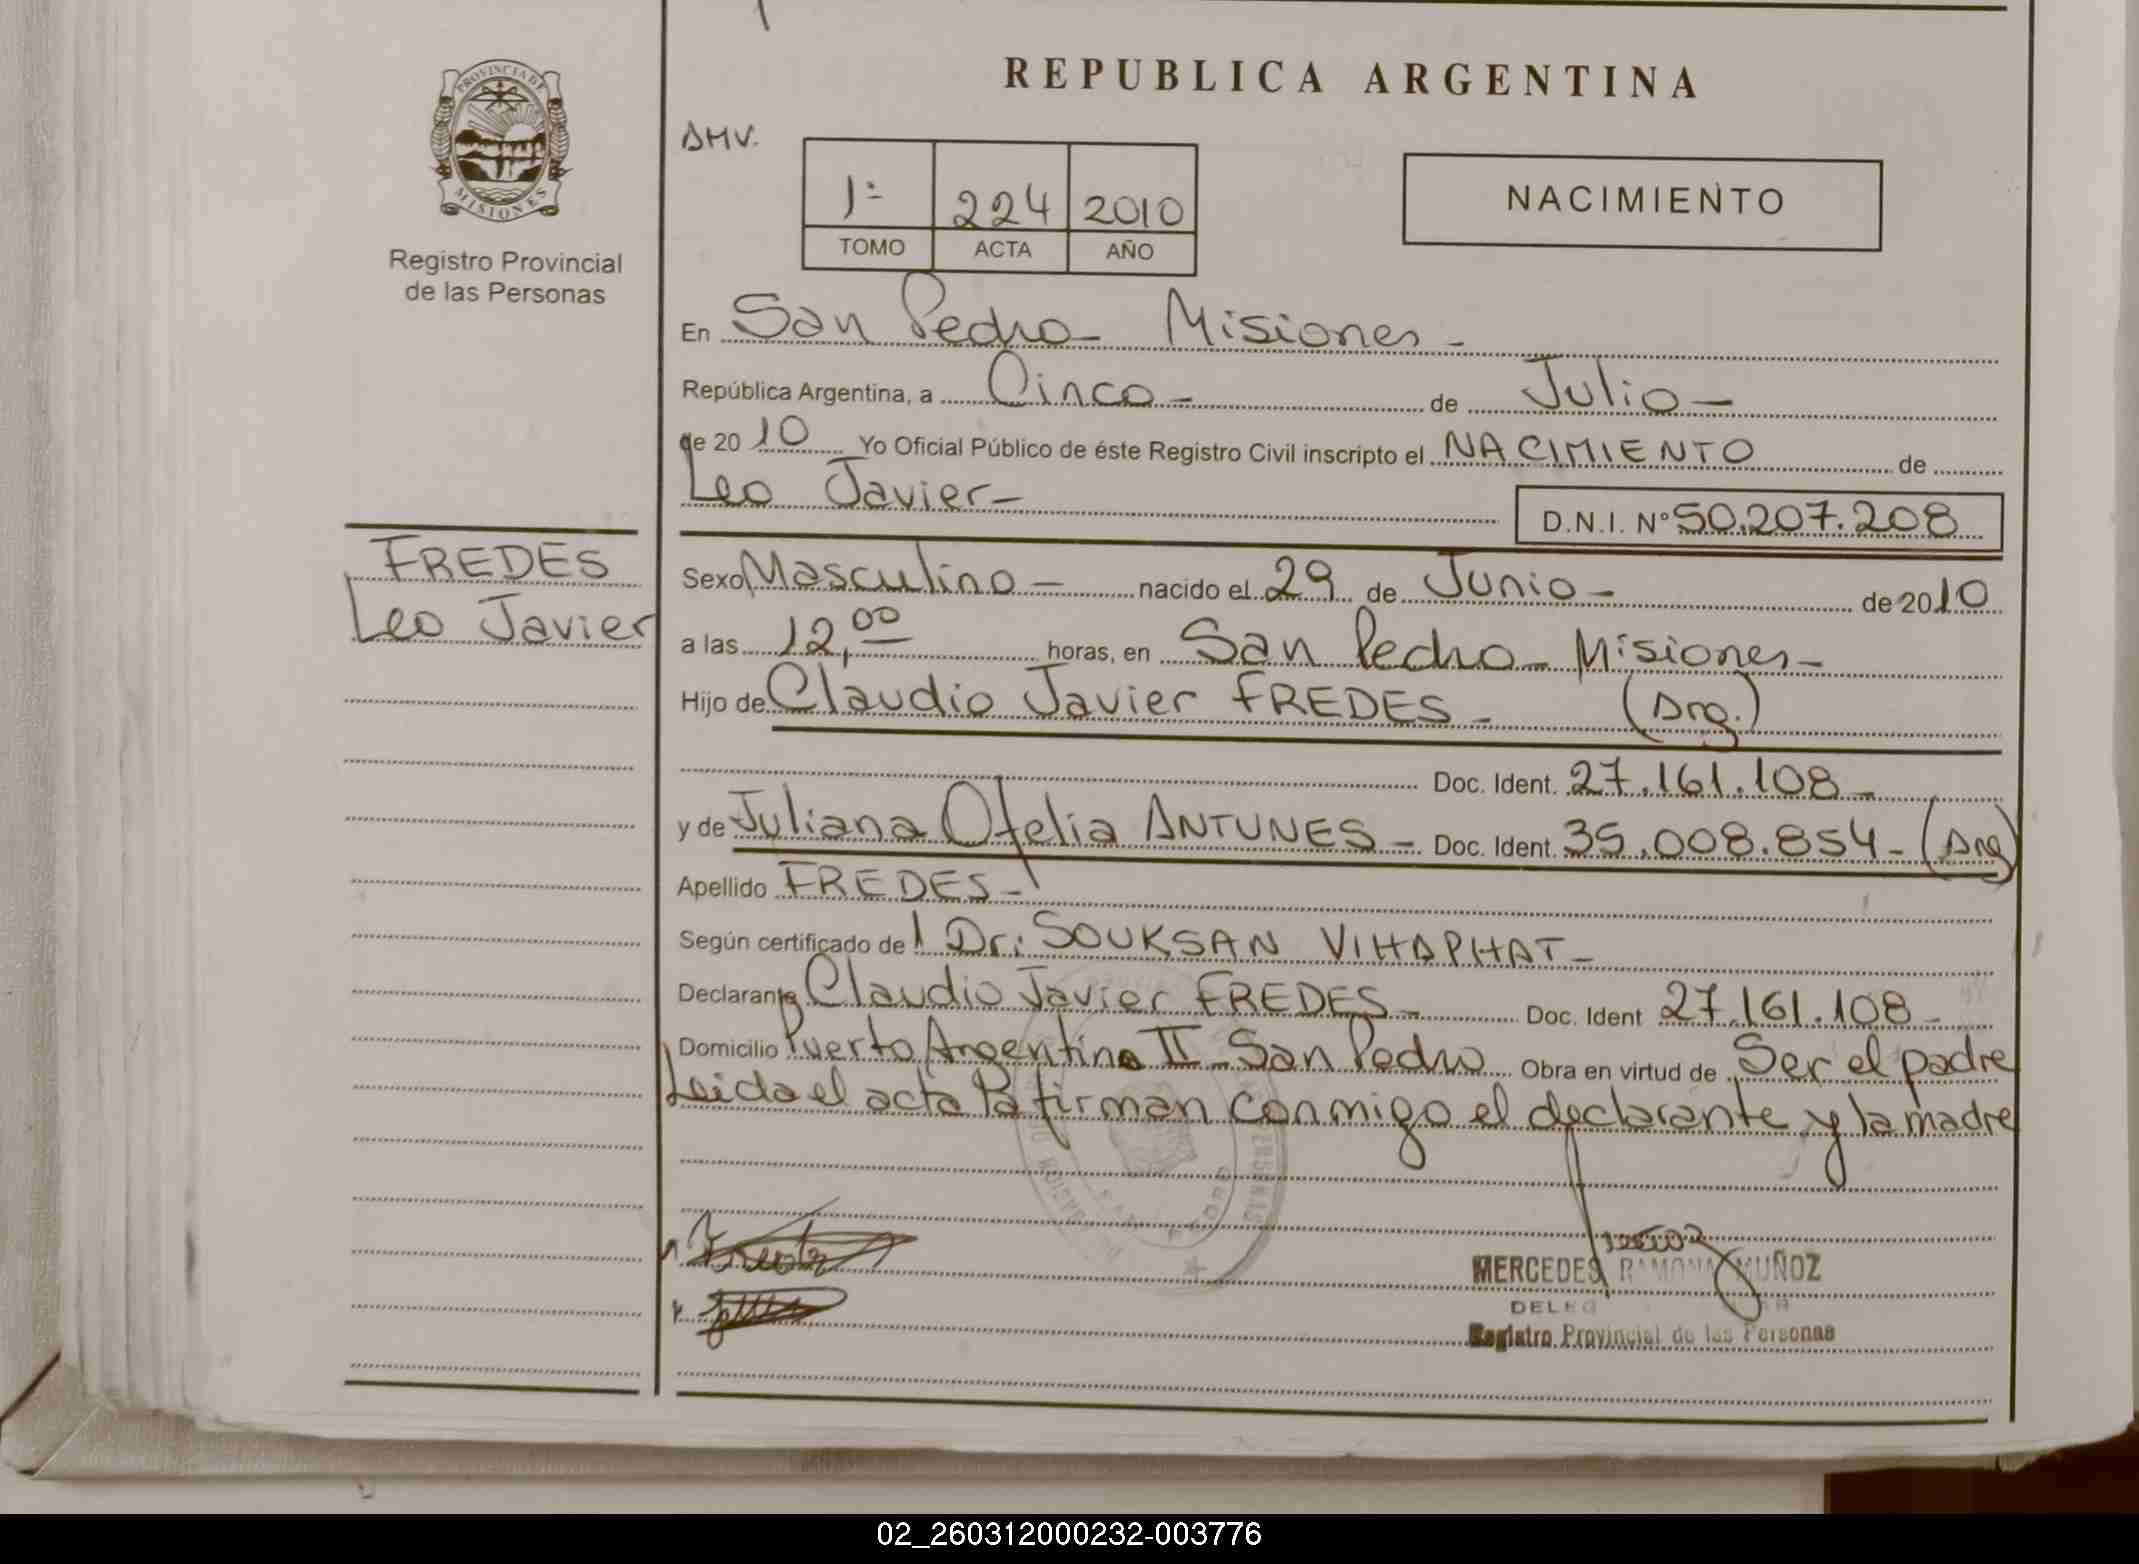 REPUBLICA ARGENTINA
PROVINCIA DE
MISIONES
Registro Provincial
de las Personas
DMV.
1º 224 2010
TOMO ACTA AÑO
NACIMIENTO
En San Pedro - Misiones -
República Argentina, a Cinco - de Julio -
de 2010 Yo Oficial Público de éste Registro Civil inscripto el NACIMIENTO de
Leo Javier -
D.N.I. Nº 50.207.208
FREDES
Leo Javier
Sexo Masculino - nacido el 29 de Junio - de 2010
a las 12,00 horas, en San Pedro - Misiones -
Hijo de Claudio Javier FREDES - (Arg.)
Doc. Ident. 27.161.108 -
y de Juliana Ofelia ANTUNES - Doc. Ident. 35.008.854 - (Arg)
Apellido FREDES -
Según certificado de Dr: SOUKSAN VIHAPHAT -
Declarante Claudio Javier FREDES - Doc. Ident 27.161.108 -
Domicilio Puerto Argentino II - San Pedro Obra en virtud de Ser el padre
Leida el acta la firman conmigo el declarante y la madre
MERCEDES RAMONA MUÑOZ
Registro Provincial de las Personas
02_260312000232-003776